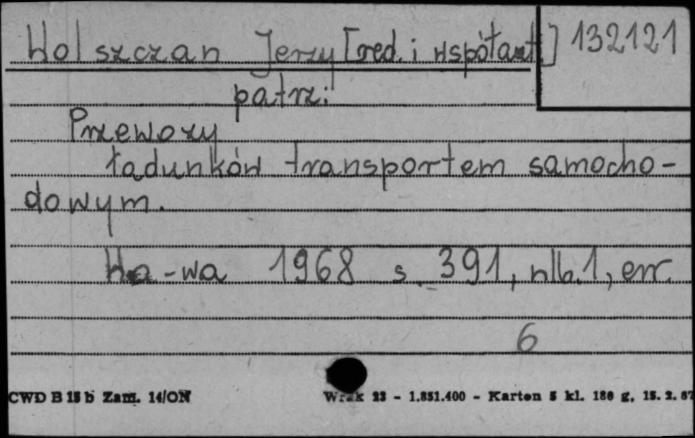 Wolszczan Jerzy [red. i współaut.] 132121
patrz:
Przewozy
ładunków transportem samocho-
dowym.
W-wa 1968 s. 391, nlb.1, err.
6
CWD B 15 b Zam. 14/ON
- 1.851.400 - Karton 5 kl. 180 g, 15. 2. 67